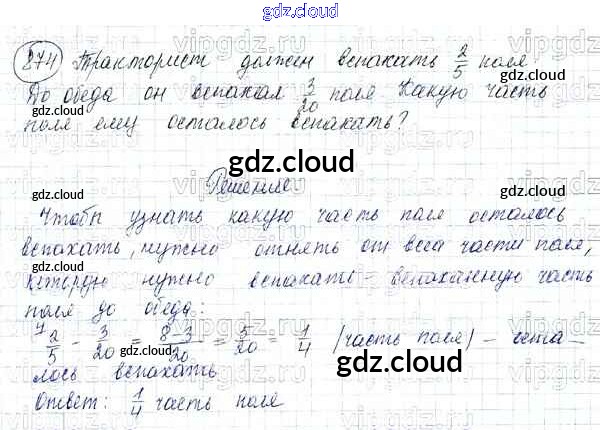 gdz.cloud
874 Тракторист должен вспахать 2/5 поля.
До обеда он вспахал 3/20 поля. Какую часть
поля ему осталось вспахать?
gdz.cloud
Решение
Чтобы узнать какую часть поля осталось
вспахать, нужно отнять от всей части поля,
которую нужно вспахать - вспаханную часть
поля до обеда:
4 2/5 - 3/20 = 8-3/20 = 5/20 = 1/4 (часть поля) - оста-
лось вспахать
Ответ: 1/4 часть поля
gdz.cloud